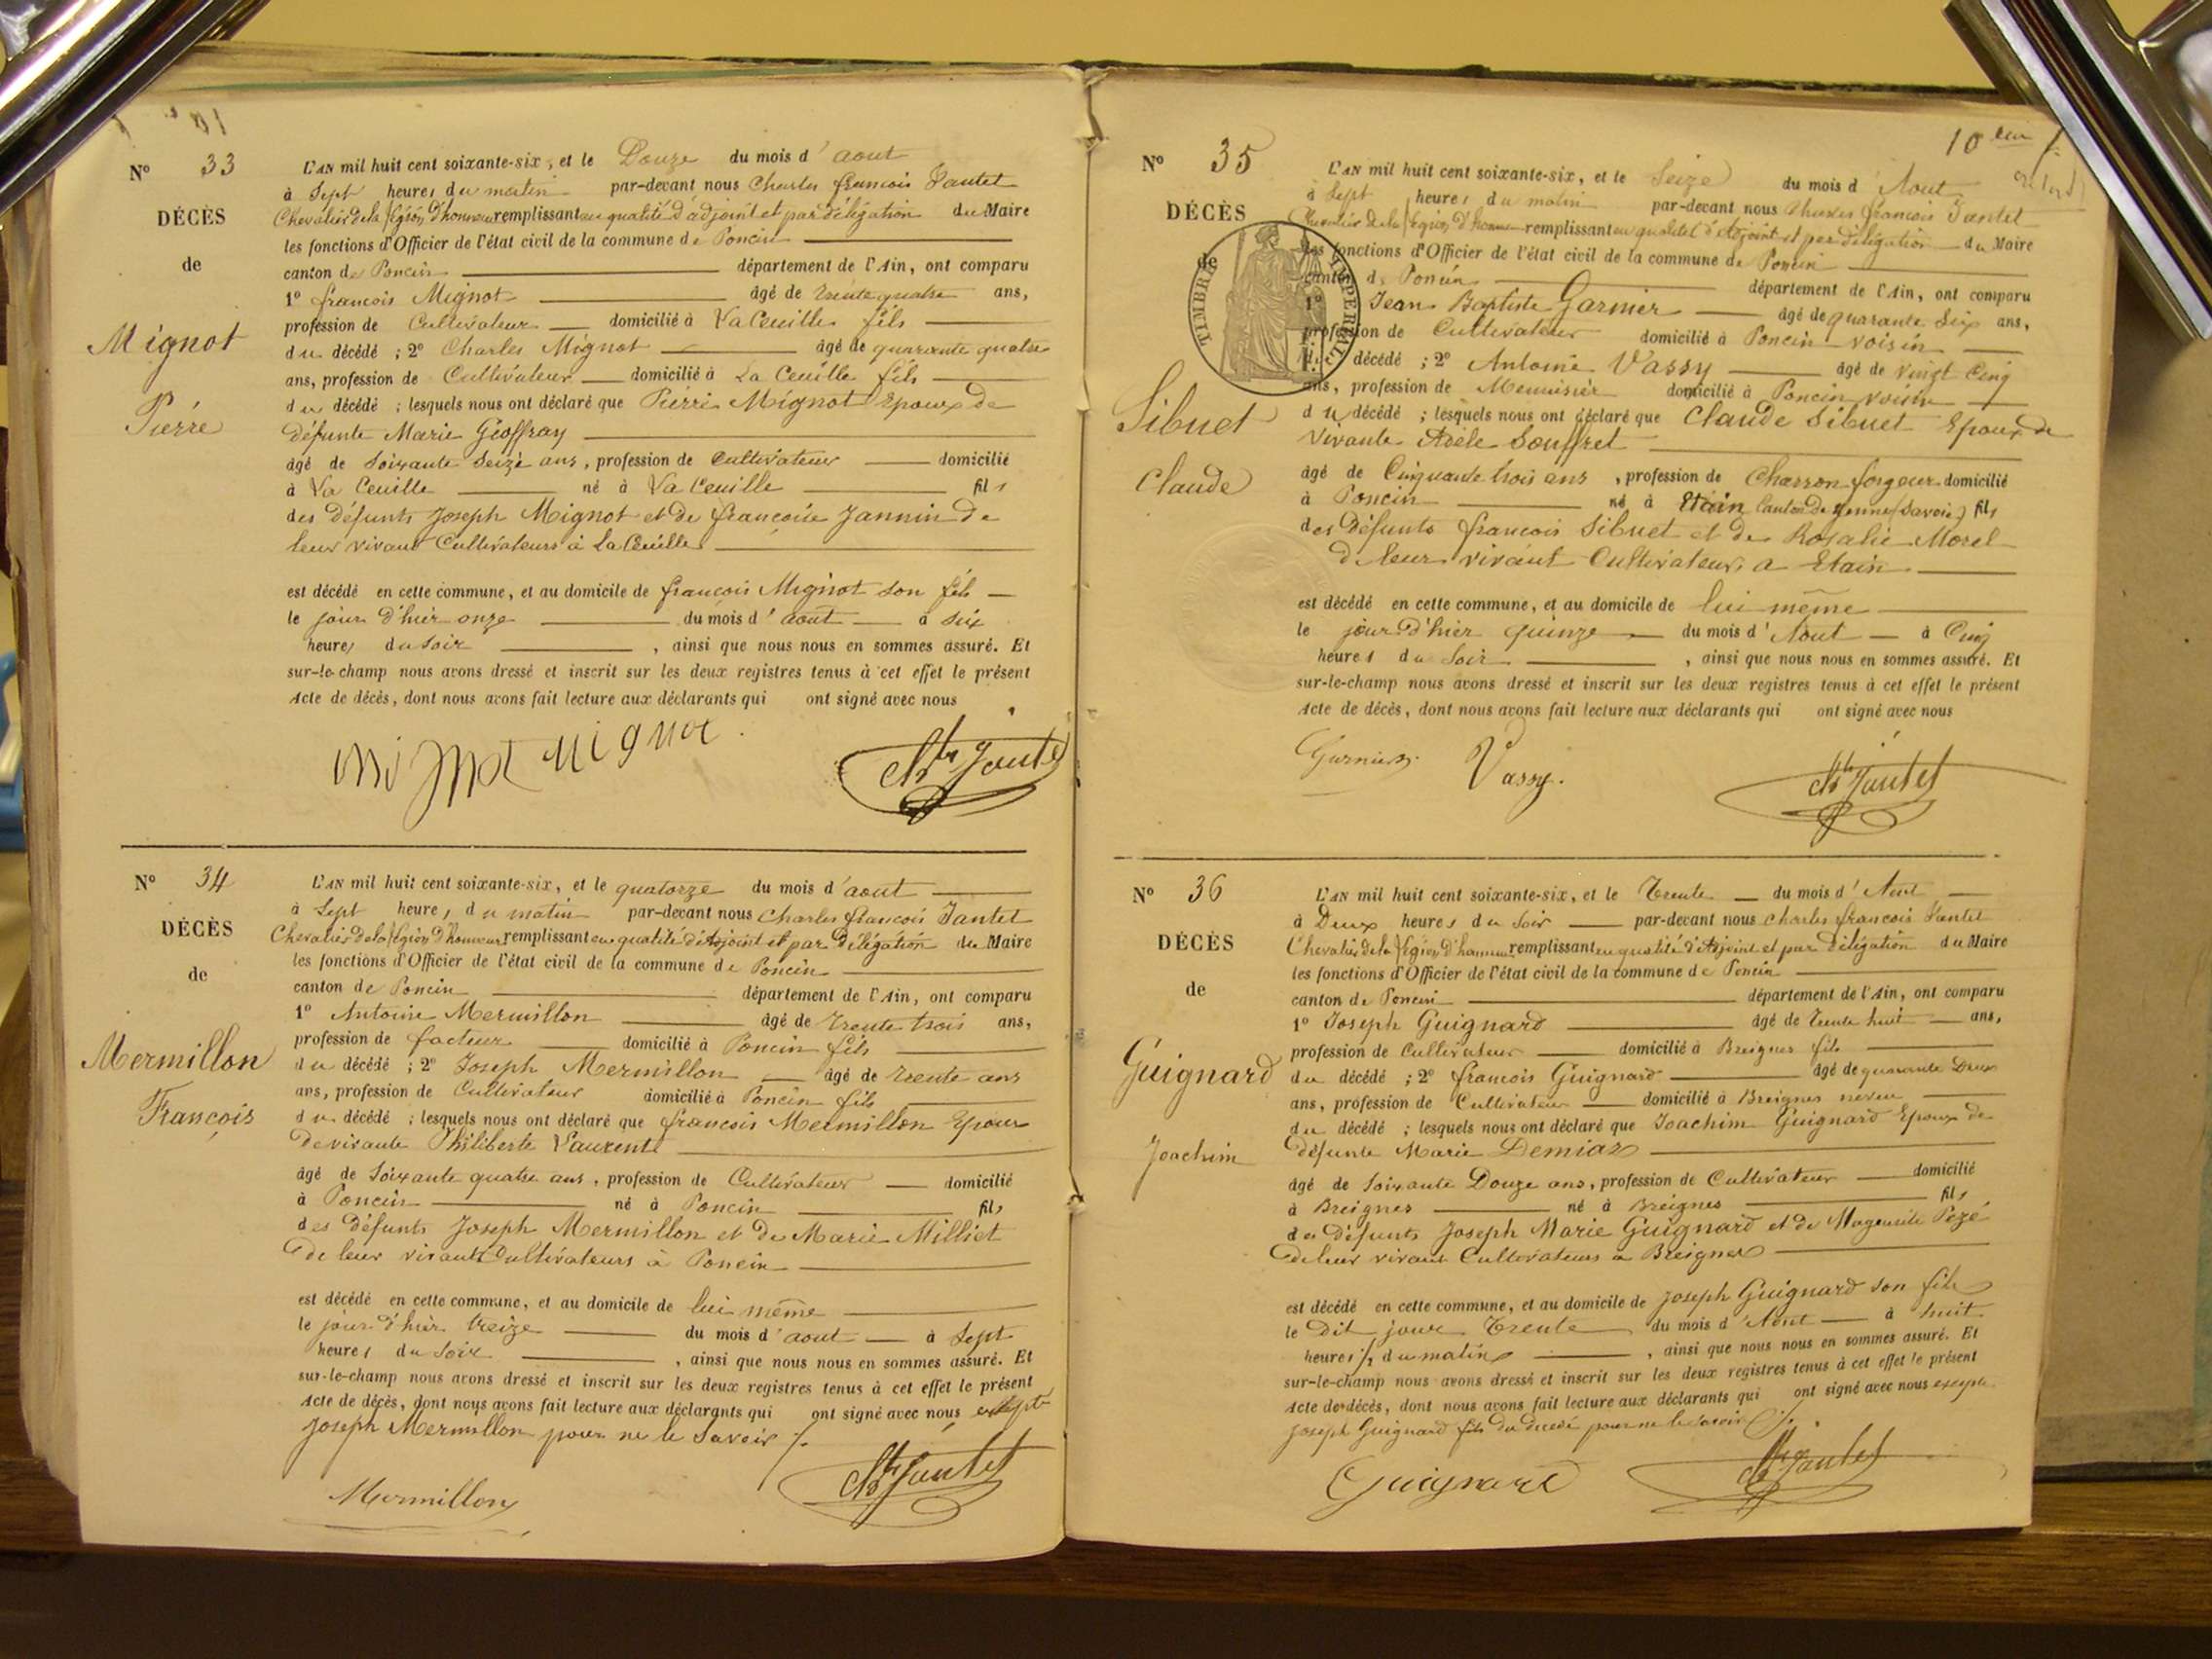 Nº 33
L'AN mil huit cent soixante-six, et le Douze du mois d'aout
à Sept heures du matin par-devant nous Charles françois Jantet
DÉCÈS
Chevalier de la légion d'honneur remplissant en qualité d'adjoint et par délégation du Maire
les fonctions d'Officier de l'état civil de la commune de Poncin
de
canton de Poncin département de l'Ain, ont comparu
1º françois Mignot âgé de trente quatre ans,
profession de Cultivateur domicilié à La Ceuille fils
Mignot
du décédé ; 2º Charles Mignot âgé de quarante quatre
ans, profession de Cultivateur domicilié à La Ceuille fils
du décédé ; lesquels nous ont déclaré que Pierre Mignot Epoux de
Pierre
défunte Marie Geoffray
âgé de soixante seize ans, profession de Cultivateur domicilié
à La Ceuille né à La Ceuille fils
des défunts Joseph Mignot et de françoise Jannin de
leur vivant Cultivateurs à La Ceuille
est décédé en cette commune, et au domicile de françois Mignot son fils
le jour d'hier onze du mois d'aout à six
heures du soir , ainsi que nous nous en sommes assuré. Et
sur-le-champ nous avons dressé et inscrit sur les deux registres tenus à cet effet le présent
Acte de décès, dont nous avons fait lecture aux déclarants qui ont signé avec nous
mignot mignot Jantet
Nº 34
L'AN mil huit cent soixante-six, et le quatorze du mois d'aout
à Sept heures du matin par-devant nous Charles françois Jantet
DÉCÈS
Chevalier de la légion d'honneur remplissant en qualité d'Adjoint et par délégation du Maire
les fonctions d'Officier de l'état civil de la commune de Poncin
de
canton de Poncin département de l'Ain, ont comparu
1º Antoine Mermillon âgé de trente trois ans,
profession de facteur domicilié à Poncin fils
Mermillon
du décédé ; 2º Joseph Mermillon âgé de trente ans
ans, profession de Cultivateur domicilié à Poncin fils
François
du décédé ; lesquels nous ont déclaré que françois Mermillon Epoux
de vivante Philiberte Laurent
âgé de soixante quatre ans, profession de Cultivateur domicilié
à Poncin né à Poncin fils
des défunts Joseph Mermillon et de Marie Milliet
de leur vivant Cultivateurs à Poncin
est décédé en cette commune, et au domicile de lui même
le jour d'hier treize du mois d'aout à Sept
heures du soir , ainsi que nous nous en sommes assuré. Et
sur-le-champ nous avons dressé et inscrit sur les deux registres tenus à cet effet le présent
Acte de décès, dont nous avons fait lecture aux déclarants qui ont signé avec nous excepté
Joseph Mermillon pour ne le savoir ./.
Mermillon Jantet
10
Nº 35
L'AN mil huit cent soixante-six, et le Seize du mois d'Aout
à Sept heures du matin par-devant nous Charles françois Jantet
DÉCÈS
Chevalier de la légion d'honneur remplissant en qualité d'Adjoint et par délégation du Maire
les fonctions d'Officier de l'état civil de la commune de Poncin
de
TIMBRE IMPÉRIAL
canton de Poncin département de l'Ain, ont comparu
1º Jean Baptiste Garnier âgé de quarante six ans,
profession de Cultivateur domicilié à Poncin voisin
du décédé ; 2º Antoine Vassy âgé de vingt cinq
ans, profession de Menuisier domicilié à Poncin voisin
Sibuet
du décédé ; lesquels nous ont déclaré que Claude Sibuet Epoux de
vivante Adèle Souffret
Claude
âgé de Cinquante trois ans, profession de Charron forgeur domicilié
à Poncin né à Etain Canton de yenne (Savoie) fils
des défunts françois Sibuet et de Rosalie Morel
d leur vivant Cultivateurs a Etain
est décédé en cette commune, et au domicile de lui même
le jour d'hier quinze du mois d'Aout à Cinq
heures du soir , ainsi que nous nous en sommes assuré. Et
sur-le-champ nous avons dressé et inscrit sur les deux registres tenus à cet effet le présent
Acte de décès, dont nous avons fait lecture aux déclarants qui ont signé avec nous
Garnier Vassy. Jantet
Nº 36
L'AN mil huit cent soixante-six, et le Trente du mois d'Aout
à Deux heures du soir par-devant nous Charles françois Jantet
DÉCÈS
Chevalier de la légion d'honneur remplissant en qualité d'Adjoint et par délégation du Maire
les fonctions d'Officier de l'état civil de la commune de Poncin
de
canton de Poncin département de l'Ain, ont comparu
1º Joseph Guignard âgé de trente huit ans,
profession de Cultivateur domicilié à Breignes fils
Guignard
du décédé ; 2º françois Guignard âgé de quarante Deux
ans, profession de Cultivateur domicilié à Breignes neveu
du décédé ; lesquels nous ont déclaré que Joachim Guignard Epoux de
Joachim
défunte Marie Demiaz
âgé de soixante Douze ans, profession de Cultivateur domicilié
à Breignes né à Breignes fils
des défunts Joseph Marie Guignard et de Magerite Pezé
de leur vivant Cultivateurs a Breignes
est décédé en cette commune, et au domicile de Joseph Guignard son fils
le Dit jour Trente du mois d'Aout à huit
heures ½ du matin , ainsi que nous nous en sommes assuré. Et
sur-le-champ nous avons dressé et inscrit sur les deux registres tenus à cet effet le présent
Acte de décès, dont nous avons fait lecture aux déclarants qui ont signé avec nous excepté
Joseph Guignard fils du décédé pour ne le savoir ./.
Guignard Jantet